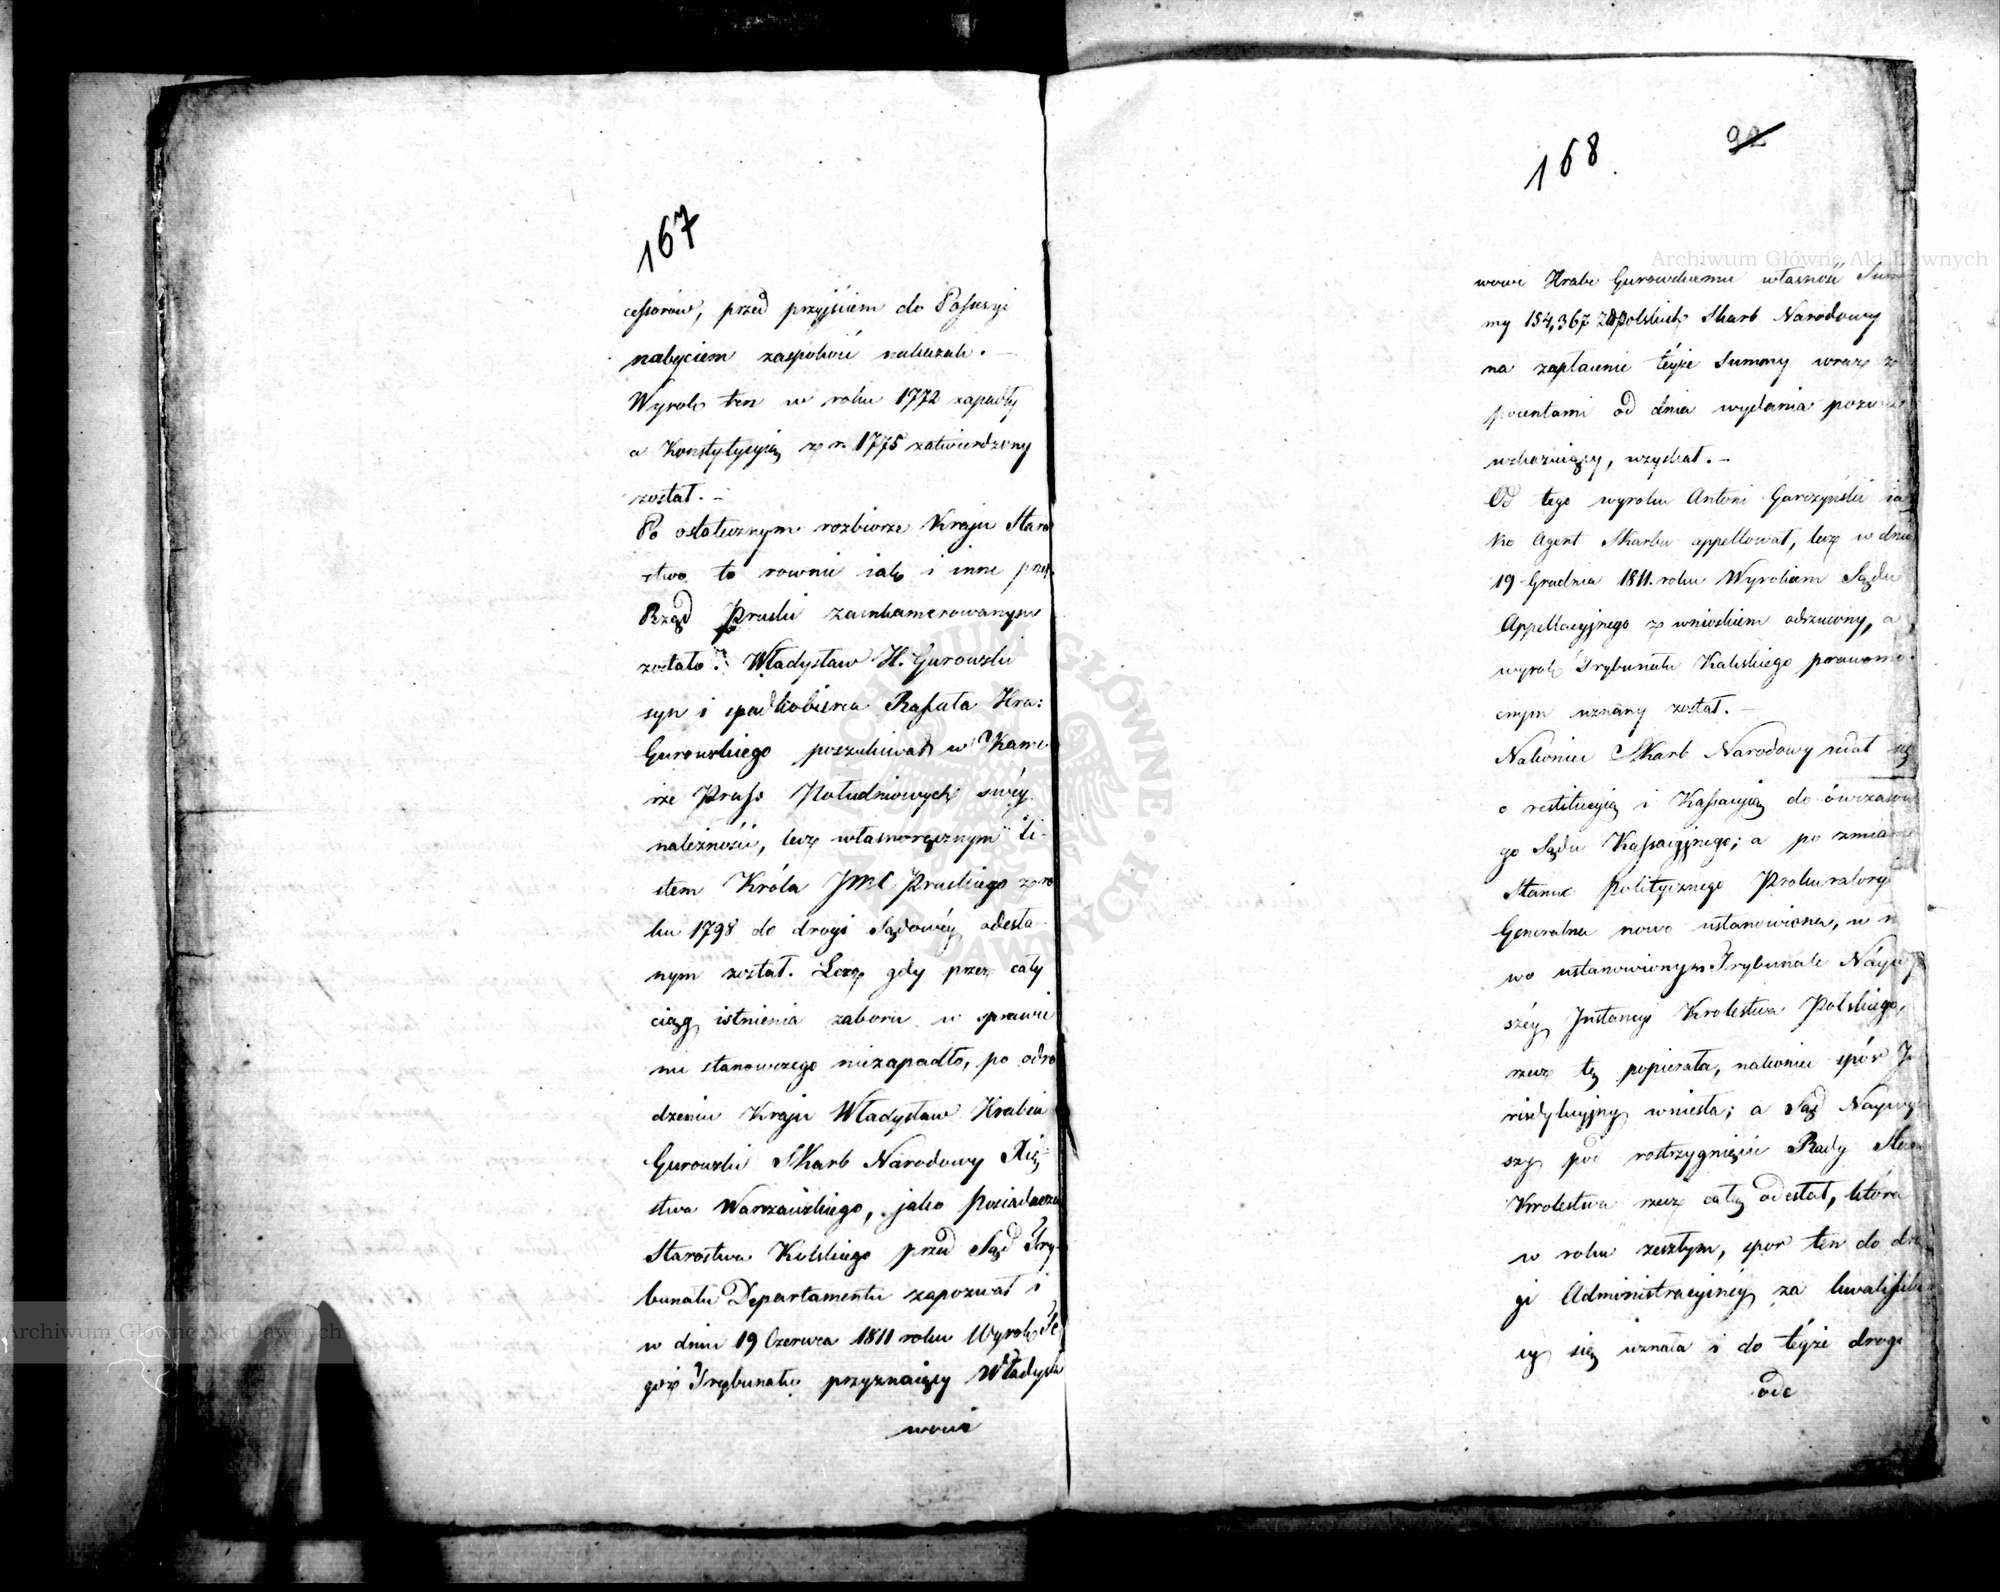 167
cessorów, przed przyjściem do Possessyi
nabyciem zaspokoić nakazali. —
Wyrok ten w roku 1772 zapadły
a Konstytucyią z r. 1775 zatwierdzony
został. —
Po ostatecznym rozbiorze Kraju Staro
stwo to rownie iak i inne przez
Rząd Pruski zainkamerowanym
zostało. Władysław H. Gurowski
syn i spadkobierca Rafała Hra:
Gurowskiego poszukiwał w Kame
rze Pruss Południowych swéy
należności, lecz własnoręcznym Li-
stem Króla JMC Pruskiego z ro
ku 1798 do drogi Sądowéy odesła-
nym został. Lecz gdy przez cały
ciąg istnienia zaboru w sprawie
nic stanowczego niezapadło, po odro
dzeniu Kraju Władysław Hrabia
Gurowski Skarb Narodowy Xię-
stwa Warszawskiego, jako Posiadacza
Starostwa Kolskiego przed Sąd Try-
bunału Departamentu zapozwał i
w dniu 19 Czerwca 1811 roku Wyrok Te
goż Trybunału przyznaiący Władysła
wowi
168.
92
wowi Hrabi Gurowskiemu własność Sum
my 154,367 Złpolskich Skarb Narodowy
na zapłacenie téyże Summy wraz z
procentami od dnia wydania pozwu
wskazuiący, wzyskał. —
Od tego wyroku Antoni Garczyński ia
ko Agent Skarbu appellował, lecz w dniu
19 Grudnia 1811. roku Wyrokiem Sądu
Appellacyjnego z wnioskiem odrzucony, a
wyrok Trybunału Kaliskiego prawomo-
cnym uznany został. —
Nakoniec Skarb Narodowy udał się
o restitucyią i Kassacyią do ówczasow
go Sądu Kassacyjnego; a po zmianie
Stanu Politycznego Prokuratorya
Generalna nowo ustanowiona, w no
wo ustanowionym Trybunale Náywyż
széy Instancyi Krolestwa Polskiego,
rzecz tę popierała, nakoniec spór Ju
risdykcyjny wniosła; a Sąd Naywyż
szy pod rostrzygnięcie Rady Stanu
Krolestwa rzecz całą odesłał, która
w roku zeszłym, spor ten do dro
gi Administracyinéy za kwalifiku
cy się uznała i do téyże drogi
ode
Archiwum Główne Akt Dawnych
Archiwum Główne Akt Dawnych
ARCHIWUM GŁÓWNE AKT DAWNYCH